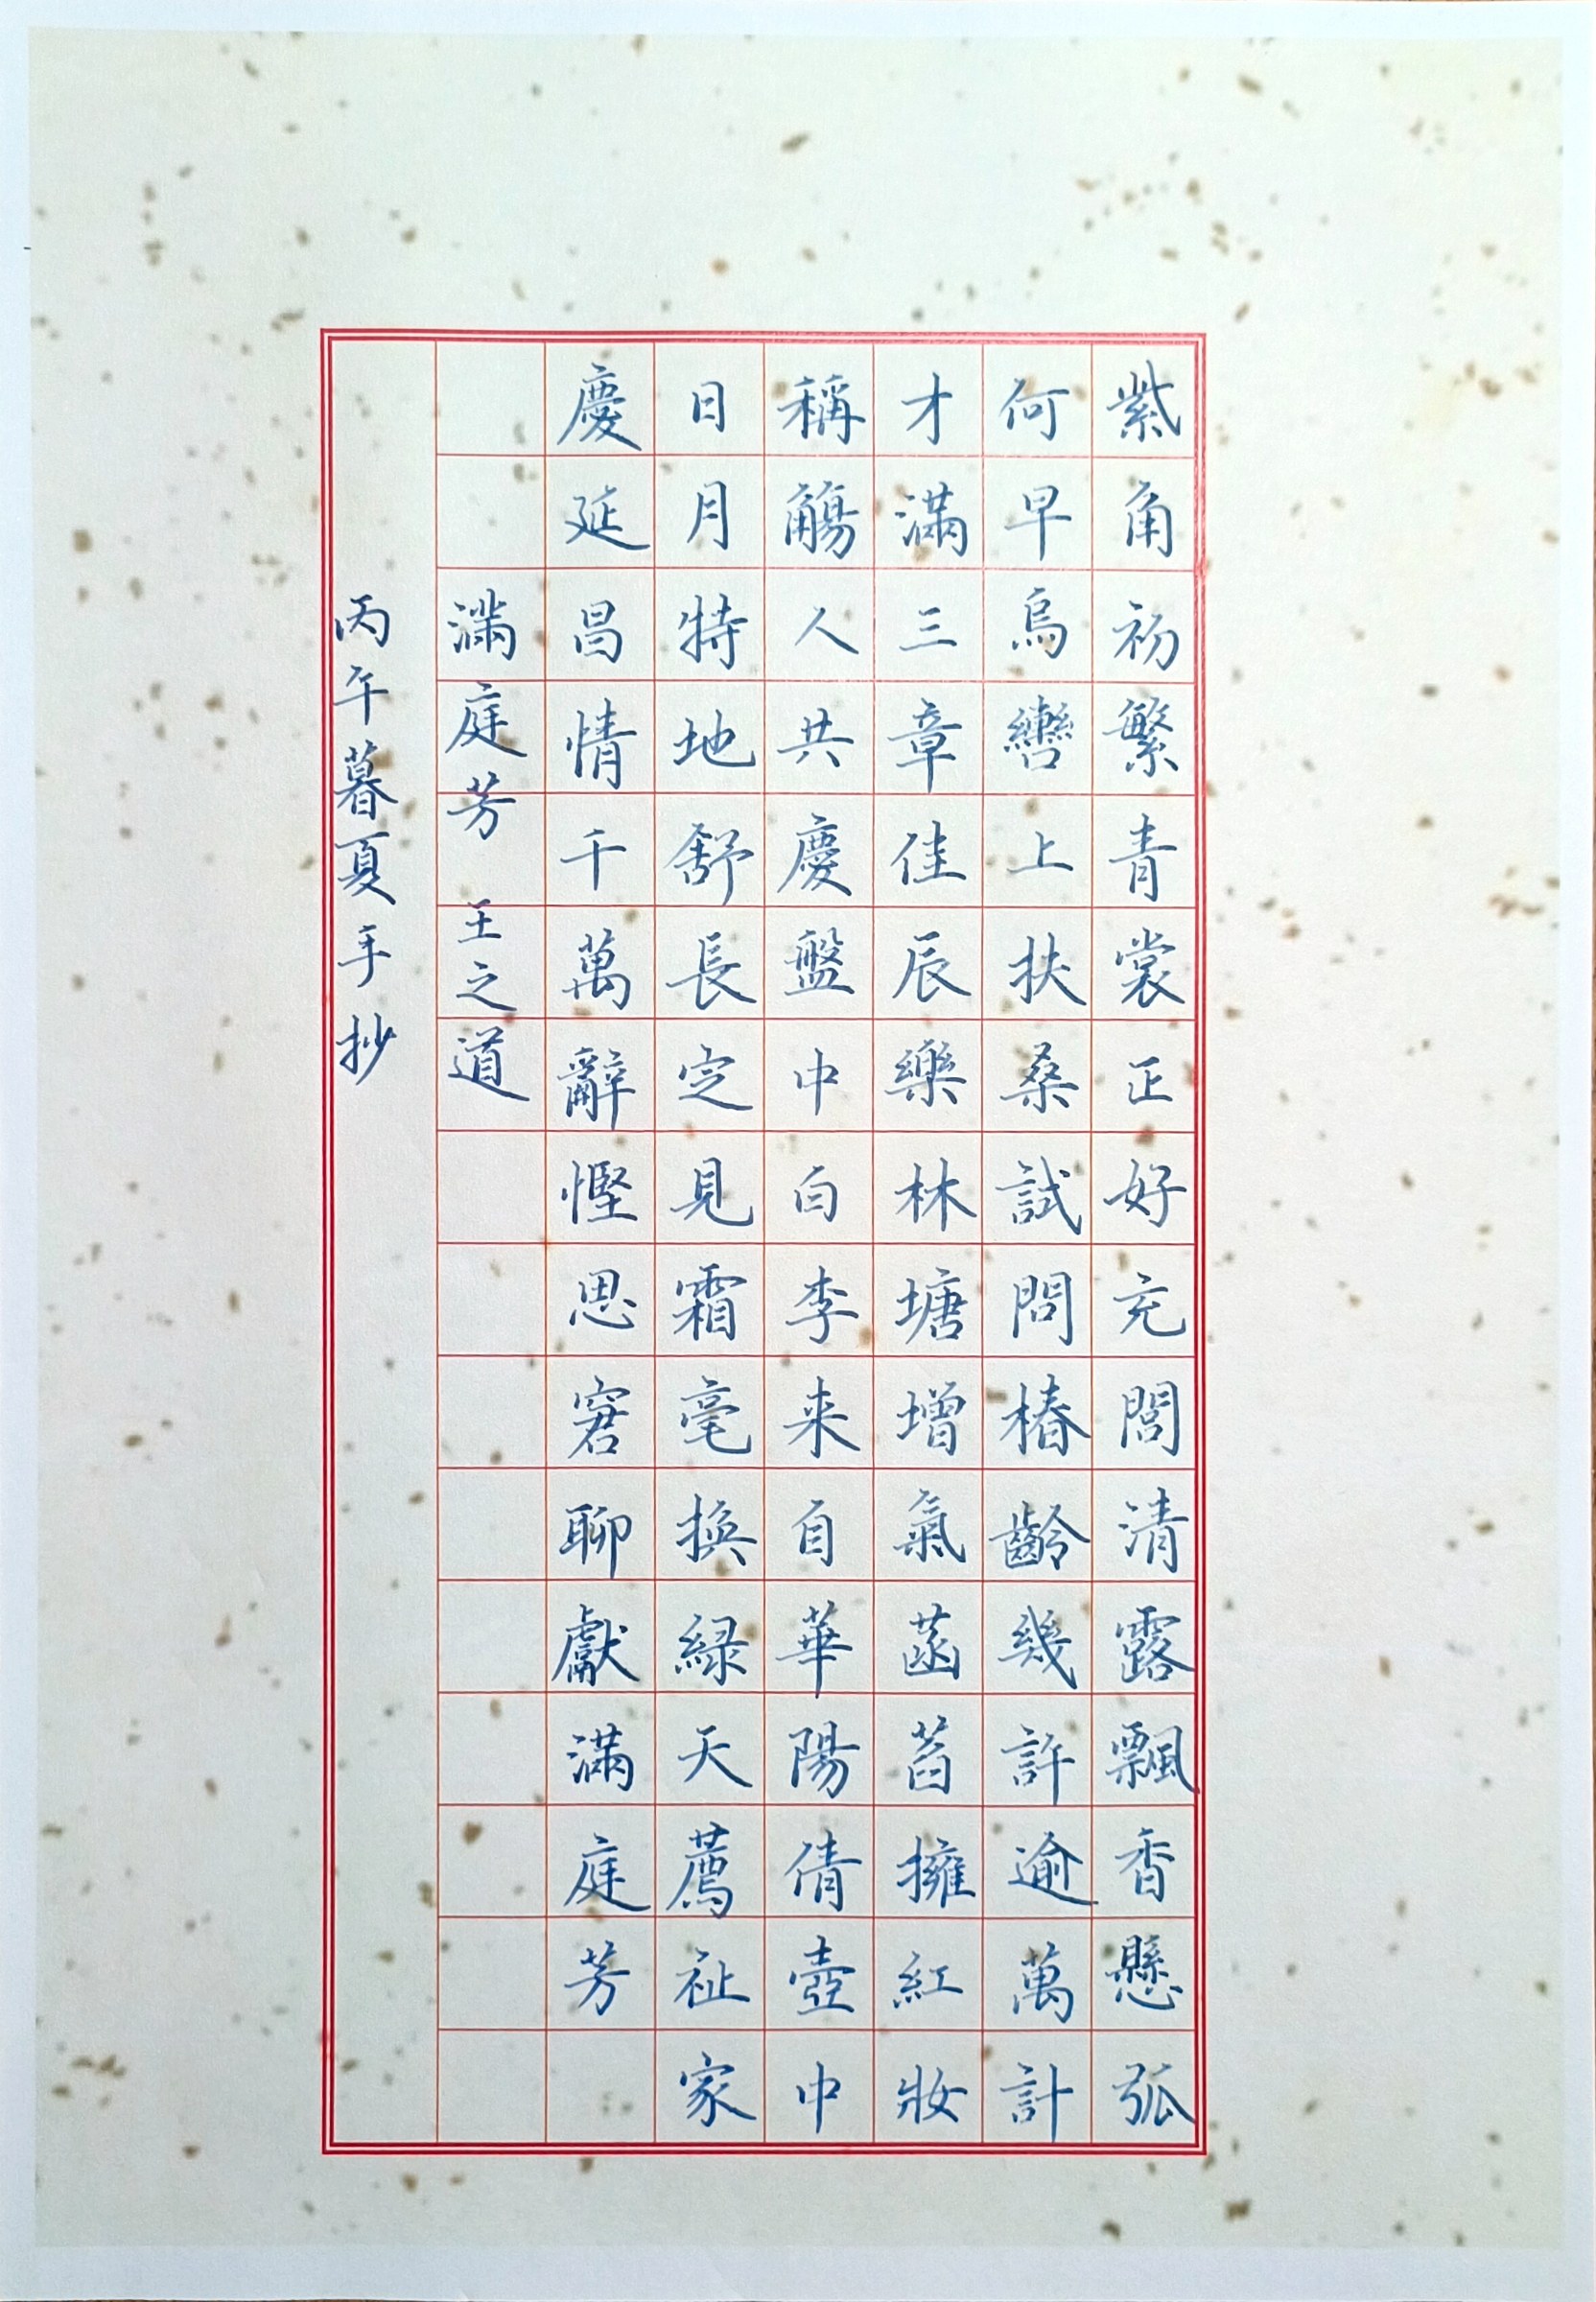 紫角初繁青裳正好充閭清露飄香懸弧
何早烏轡上扶桑試問椿齡幾許逾萬計
才滿三章佳辰樂林塘增氣菡萏擁紅妝
稱觴人共慶盤中白李来自華陽倩壺中
日月特地舒長定見霜毫換緑天薦祉家
慶延昌情千萬辭慳思窘聊獻滿庭芳
滿庭芳 王之道
丙午暮夏手抄